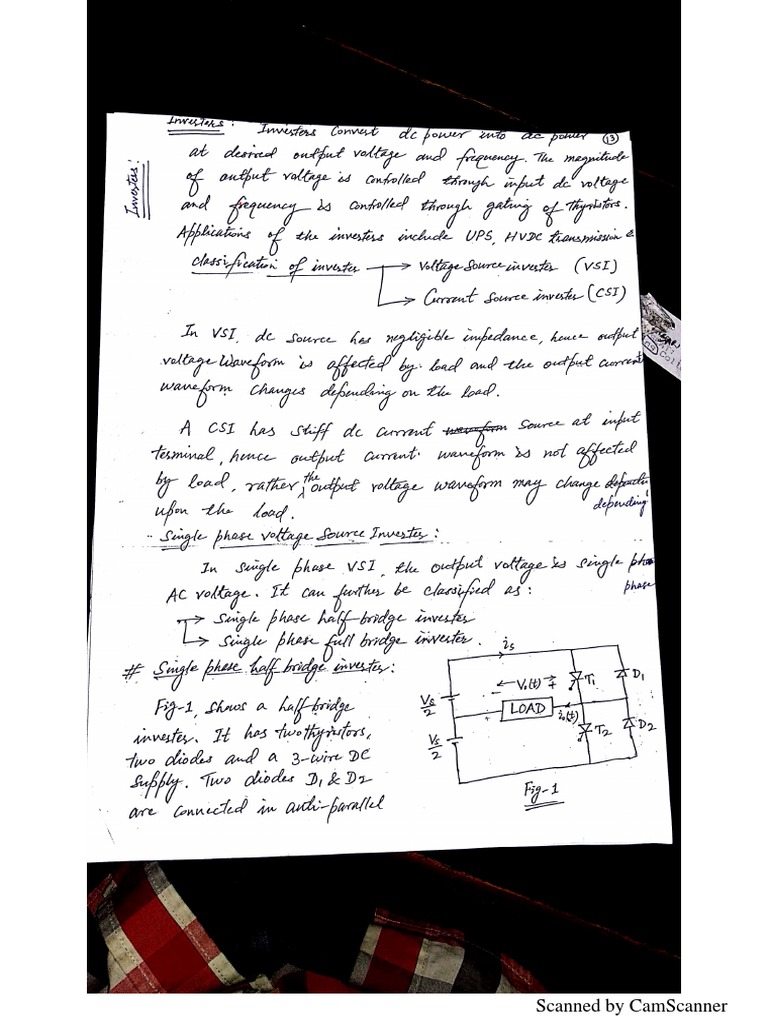 Inverters : Inverters Convert dc power into ac power (13)
Inverters :
at desired output voltage and frequency. The magnitude
of output voltage is controlled through input dc voltage
and frequency is controlled through gating of Thyristors.
Applications of the inverters include UPS, HVDC transmission &
classification of inverter → Voltage Source inverter (VSI)
→ Current Source inverter (CSI)
In VSI, dc source has negligible impedance, hence output
voltage waveform is affected by load and the output current
waveform changes depending on the load.
A CSI has stiff dc current waveform Source at input
terminal, hence output current waveform is not affected
by load, rather the output voltage waveform may change
depending
upon the load.
Single phase voltage Source Inverter :
In single phase VSI, the output voltage is single
phase
AC voltage. It can further be classified as :
→ Single phase half-bridge inverter
→ Single phase full bridge inverter.
# Single phase half bridge inverter :
Fig-1, shows a half-bridge
inverter. It has two thyristors,
two diodes and a 3-wire DC
Supply. Two diodes D1 & D2
are connected in anti-parallel
is
Vs/2
Vs/2
- ← Vo(t) → +
LOAD
io(t)
T1
D1
T2
D2
Fig-1
Scanned by CamScanner